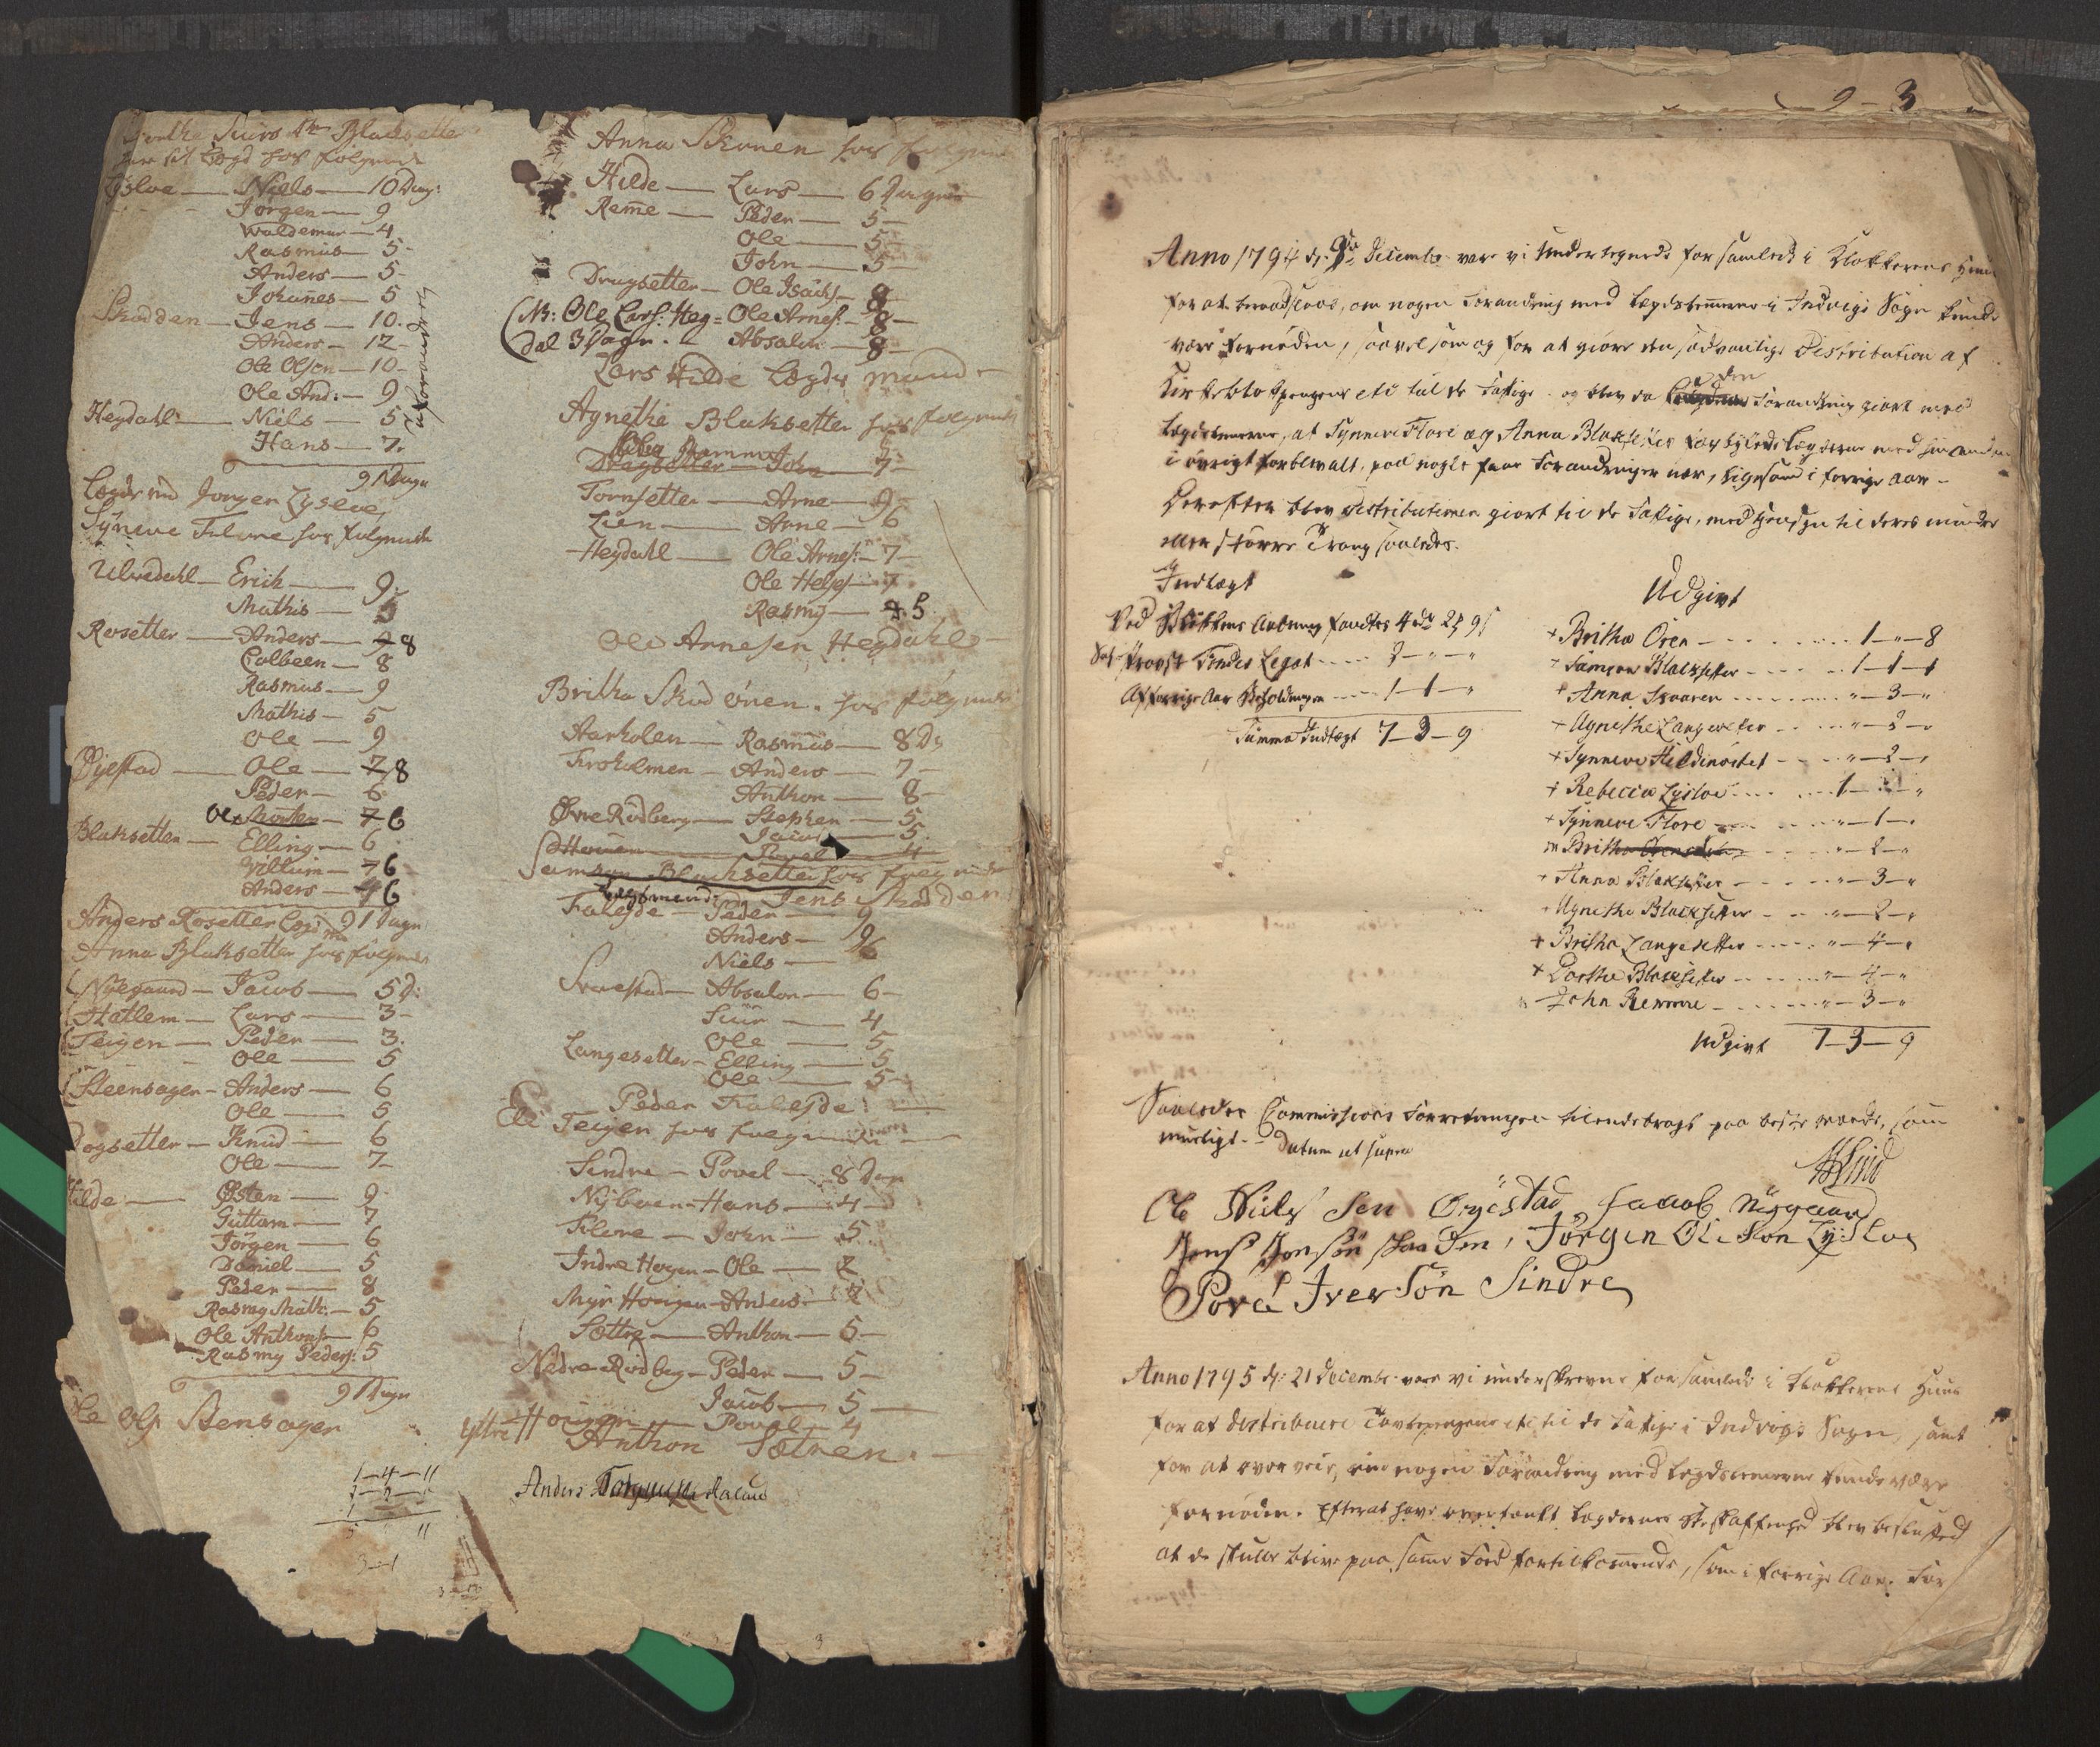 Dorthe Siurs Dr Blaksetter
har sit Lægd hos følgende
Lÿsloe — Niels — 10 Dage:
Jørgen — 9
Waldemar — 4
Rasmus — 5 -
Anders — 5 -
Johanes — 5
Skadden — Jens — 10.
Anders — 12 -
Ole Olson — 10 -
Ole And: — 9
Heydahl — Niels — 5
Hans — 7.
91 Dage
Jorgen Lysloe
Sÿneve Flore hos følgende
Ulvedahl — Erich — 9.
Mathis — 5
Rosetter — Anders — 8
Colbeen — 8
Rasmus — 9
Mathis — 5
Ole — 9
Øÿestad — Ole — 7 8
Peder — 6
Ole Morten — 7 6
Blaksetter — Elling — 6
Villum — 7 6
Anders — 6
91 Dage
Anders Rosetter
Anna Blaksetter hos følgende
Nÿegaard — Jacob — 5 D:
Hatlem — Lars — 3 -
Teigen — Peder — 3.
Ole — 5
Steensager — Anders — 6
Ole — 5
Knud — 6
Ole — 7 -
Hilde — Østen — 9
Guttom — 7
Jørgen — 6
Daniel — 5
Peder — 8
Rasmy Math: — 5
Ole Anthons — 6
Rasmy Peders: 5
91 Dage
Ole Ols Stensager
1 — 4 — 11
Anna Skaren hos følgende
Hilde — Lars — 6 Dagen
Reme — Peder — 5 —
Ole — 5 —
John — 5 —
Dragsetter — Ole Isachs — 8
(Nb: Ole Lars: Heg= Ole Arnes: — 8 —
(dal 3 Dage. Absalon — 8 —
Lars Hilde Lægds mand
Agnethe Blaksetter hos følgende
Dragsetter — John — 7
Tornsetter — Arne — 9
Lien — Arne — 6
Heydahl — Ole Arnes: — 7 —
Ole Helges — 7.
Rasmy — 5
Ole Arnesen Heydahl
Britha Skad Ören. hos følgende
Aarholen — Rasmus — 8 D:
Froholmen — Anders — 7 —
Anthon — 8 —
Øvre Rødberg — Stephen — 5
Jacob — 5
Houen — Povel — 4
Samson Blaksetter hos følgende
Lægsmand Jens Skadden
Faleide — Peder — 9
Anders — 9
Niels — 6
Svarstad — Absalon — 6 —
Siur — 4
Ole — 5
Langesetter — Elling — 5
Ole — 5
Peder Faleide
Ele Teigen hos følgende
Sindre — Povel — 8 Dage
Nÿboen — Hans — 4 —
Flore — John — 5
Indre Hogen — Ole — 7
Myr Hougen — Anders — 7
Sættre — Anthon — 5 —
Nedre Rødberg — Peder — 5 —
Jacob — 5 —
Ÿttre Hougen — Povel — 4
Anthon Sætren.
Anders
9 — 3
Anno 1794 d: 9de Decembr vare vi Undertegnede forsamlede i Klokkerens Huus
for at beraadslaae, om nogen Forandring med Lægdslemmerne i Indvigs Sogn kunde
være fornøden, saavel som og for at giøre den sædvanlige Distribution af
Kirkeblokpengene etc til de Fattige. og blev da den Forandring giort med
Lægdslemmerne, at Synneve Flore og Anna Blaksetter ombyttede Lægderne med hinanden
i øvrigt forblev alt, paa nogle faae Forandringer nær, ligesom i forrige Aar -
Derefter blev Distributionen giort til de Fattige, med Hensyn til deres mindre
eller større Trang saaledes.
Indtægt
Ved Blokkens Aabning fandtes 4 rdr 2 § 9 s
Sal: Provst Findes Legat ..... 2 — " — "
Af forrige Aar Beholdningen .... 1 — 1 — "
Summa Indtægt 7 — 3 — 9
Udgivt
+ Britha Ören — 1 — " — 8
Samson Blaksetter — 1 — 1 — 1
+ Anna Skaaren — " — 3 — "
Agnethe Langesetter — " — 2 — "
+ Synneve Hildenestet — " — 2 — "
+ Rebecca Lysloe — 1 — "
+ Synneve Flore — " — 1 — "
Britha — " — 2 — "
Anna Blaksetter — " — 3 — "
Agnethe Blaksetter — " — 2 — "
+ Britha Langesetter — " — 4 — "
+ Dorthe Blaksetter — " — 4 — "
John Remme — " — 3 — "
Udgivt 7 — 3 — 9
Saaledes Commissions Forretningen tilendebragt paa beste Maade, som
mueligt. — Datum ut supra
Ole Niels Sen Øyestad, Jacob Nÿgaard
Jens Jonsøn Skadden, Jørgen Ole Søn Lÿsloe
Povel Iver Søn Sindre
Anno 1795 d: 21 Decembr vare vi underskrevne forsamlede i Klokkerens Huus
for at distribuere Tavlepengene etc til de Fattige i Indvigs Sogn, samt
for at overveie, om nogen Forandring med Lægdslemmerne kunde være
fornøden. Efter at have overtænkt Lægdernes Beskaffenhed blev besluttet
at de skulde blive paa samme Fod for tilkommende, som i forrige Aar. For